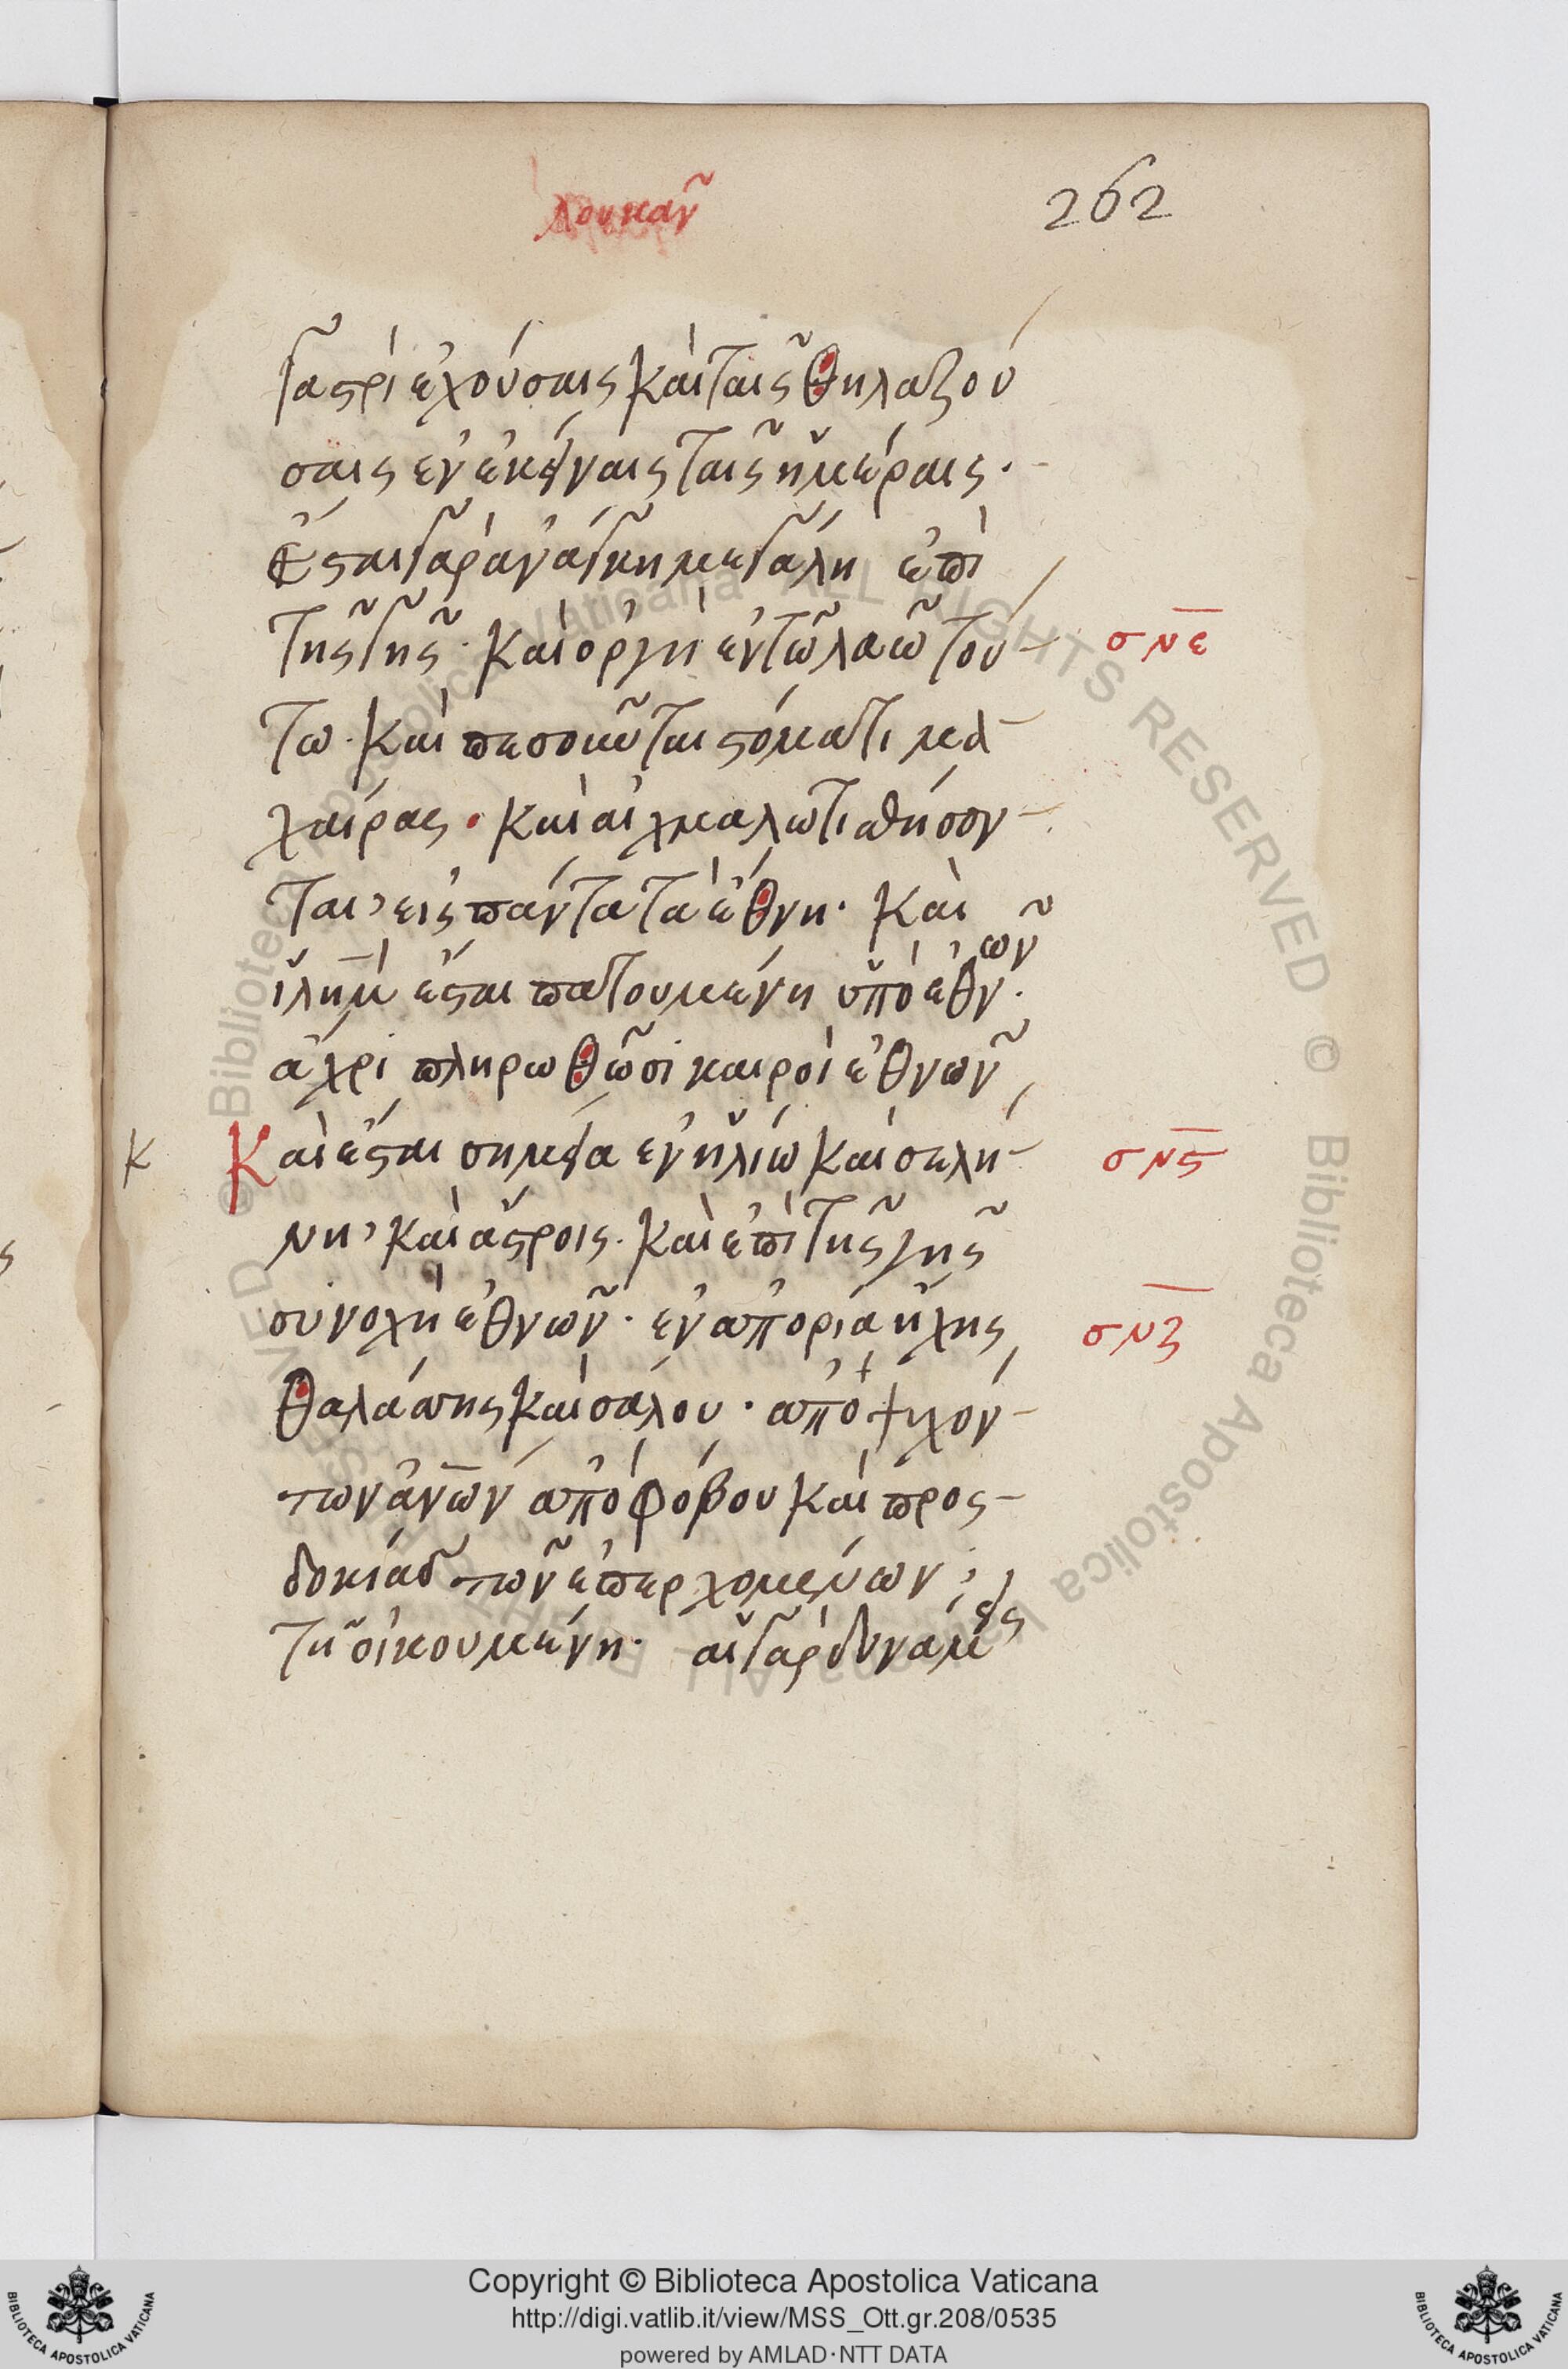 λουκᾶν
262
γαστρὶ ἐχούσαις καὶ ταῖς θηλαζού
σαις ἐν ἐκείναις ταῖς ἡμέραις·
Ἔσται γὰρ ἀνάγκη μεγάλη ἐπὶ
τῆς γῆς· καὶ ὀργὴ ἐν τῶ λαῶ τού-
τω· καὶ πεσοῦνται στόματι μα-
χαίρας· καὶ αἰχμαλωτισθήσον-
ται, εἰς πάντα τὰ ἔθνη· καὶ
ἰλημ̅ ἔσται πατουμένη ὑπὸ ἐθνῶν·
ἄχρι πληρωθῶσι καιροὶ ἐθνῶν
Καὶ ἔσται σημεῖα ἐν ἡλίω καὶ σελή-
νη, καὶ ἄστροις· καὶ ἐπὶ τῆς γῆς
συνοχὴ ἐθνῶν· ἐν ἀπορία ἤχης
θαλάσσης καὶ σάλου· ἀποψυχόν-
των ἀν̅ων ἀπὸ φόβου καὶ προσ-
δοκίας τῶν ἐπερχομένων
τῆ οἰκουμένη· αἱ γὰρ δυνάμεις
σνε
κ
σνς
σνζ
Copyright © Biblioteca Apostolica Vaticana
http://digi.vatlib.it/view/MSS_Ott.gr.208/0535
powered by AMLAD·NTT DATA
BIBLIOTECA APOSTOLICA VATICANA
BIBLIOTECA APOSTOLICA VATICANA